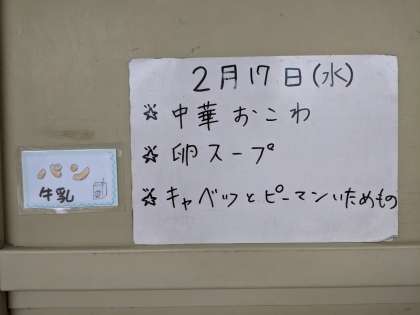 2月17日(水)
☆ 中華おこわ
☆ 卵スープ
☆ キャベツとピーマンいためもの
パン
牛乳